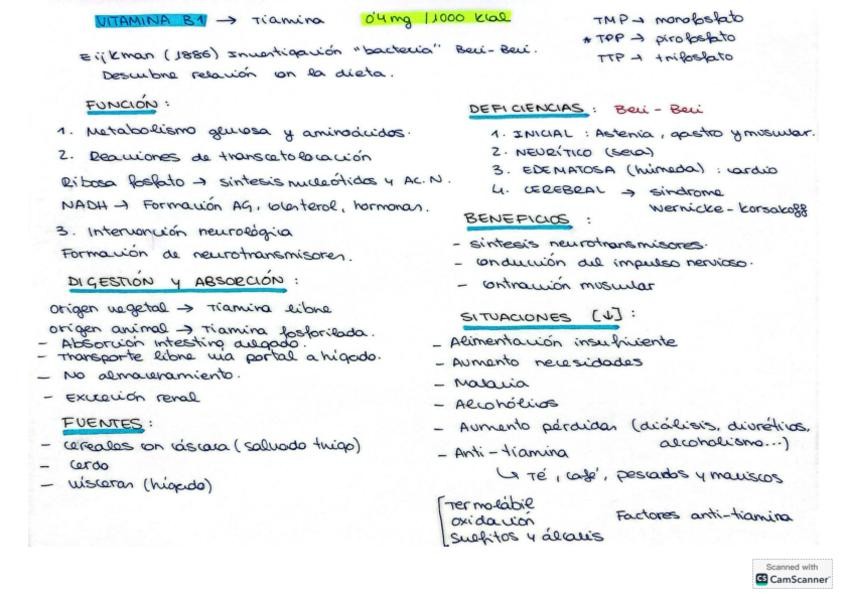 VITAMINA B1 → Tiamina 0'4mg / 1000 Kcal
Eijkman (1886) Investigación "bacteria" Beri-Beri.
Descubre relación con la dieta.
TMP → monofosfato
* TPP → pirofosfato
TTP → trifosfato
FUNCIÓN :
1. Metabolismo glucosa y aminoácidos.
2. Reacciones de transcetolocación
Ribosa fosfato → síntesis nucleótidos y AC.N.
NADH → Formación AG, colesterol, hormonas.
3. Intervención neurológica
Formación de neurotransmisores.
DIGESTIÓN y ABSORCIÓN :
origen vegetal → Tiamina libre
origen animal → Tiamina fosforilada.
- Absorción intestino delgado.
- Transporte libre vía portal a hígado.
- No almacenamiento.
- Excreción renal
FUENTES :
- cereales con cáscara (salvado trigo)
- cerdo
- vísceras (hígado)
DEFICIENCIAS : Beri - Beri
1. INICIAL : Astenia, gastro y muscular.
2. NEURÍTICO (seca)
3. EDEMATOSA (húmeda) : cardio
4. CEREBRAL → síndrome
Wernicke - Korsakoff
BENEFICIOS :
- síntesis neurotransmisores.
- conducción del impulso nervioso.
- contracción muscular
SITUACIONES [↓] :
- Alimentación insuficiente
- Aumento necesidades
- Malaria
- Alcohólicos
- Aumento pérdidas (diálisis, diuréticos,
alcoholismo...)
- Anti - tiamina
↳ Té, café, pescados y mariscos
[Termolábil
oxidación
sulfitos y álcalis
Factores anti-tiamina
Scanned with
CS CamScanner